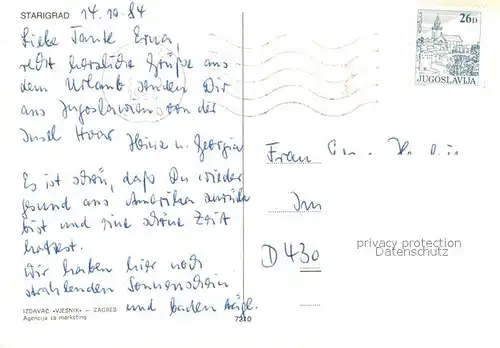 STARIGRAD
14.10.84
Liebe Tante Erna,
recht herzliche Grüße aus
dem Urlaub senden Dir
aus Jugoslawien von der
Insel Hvar Heinz u. Georgia
Es ist schön, daß Du wieder
gesund aus Amerika zurück
bist und eine schöne Zeit
hattest.
Wir haben hier noch
strahlenden Sonnenschein
und baden tägl.
IZDAVAČ «VJESNIK» — ZAGREB
Agencija za marketing
7210
26D
JUGOSLAVIJA
Frau
Im
D 430
privacy protection
Datenschutz